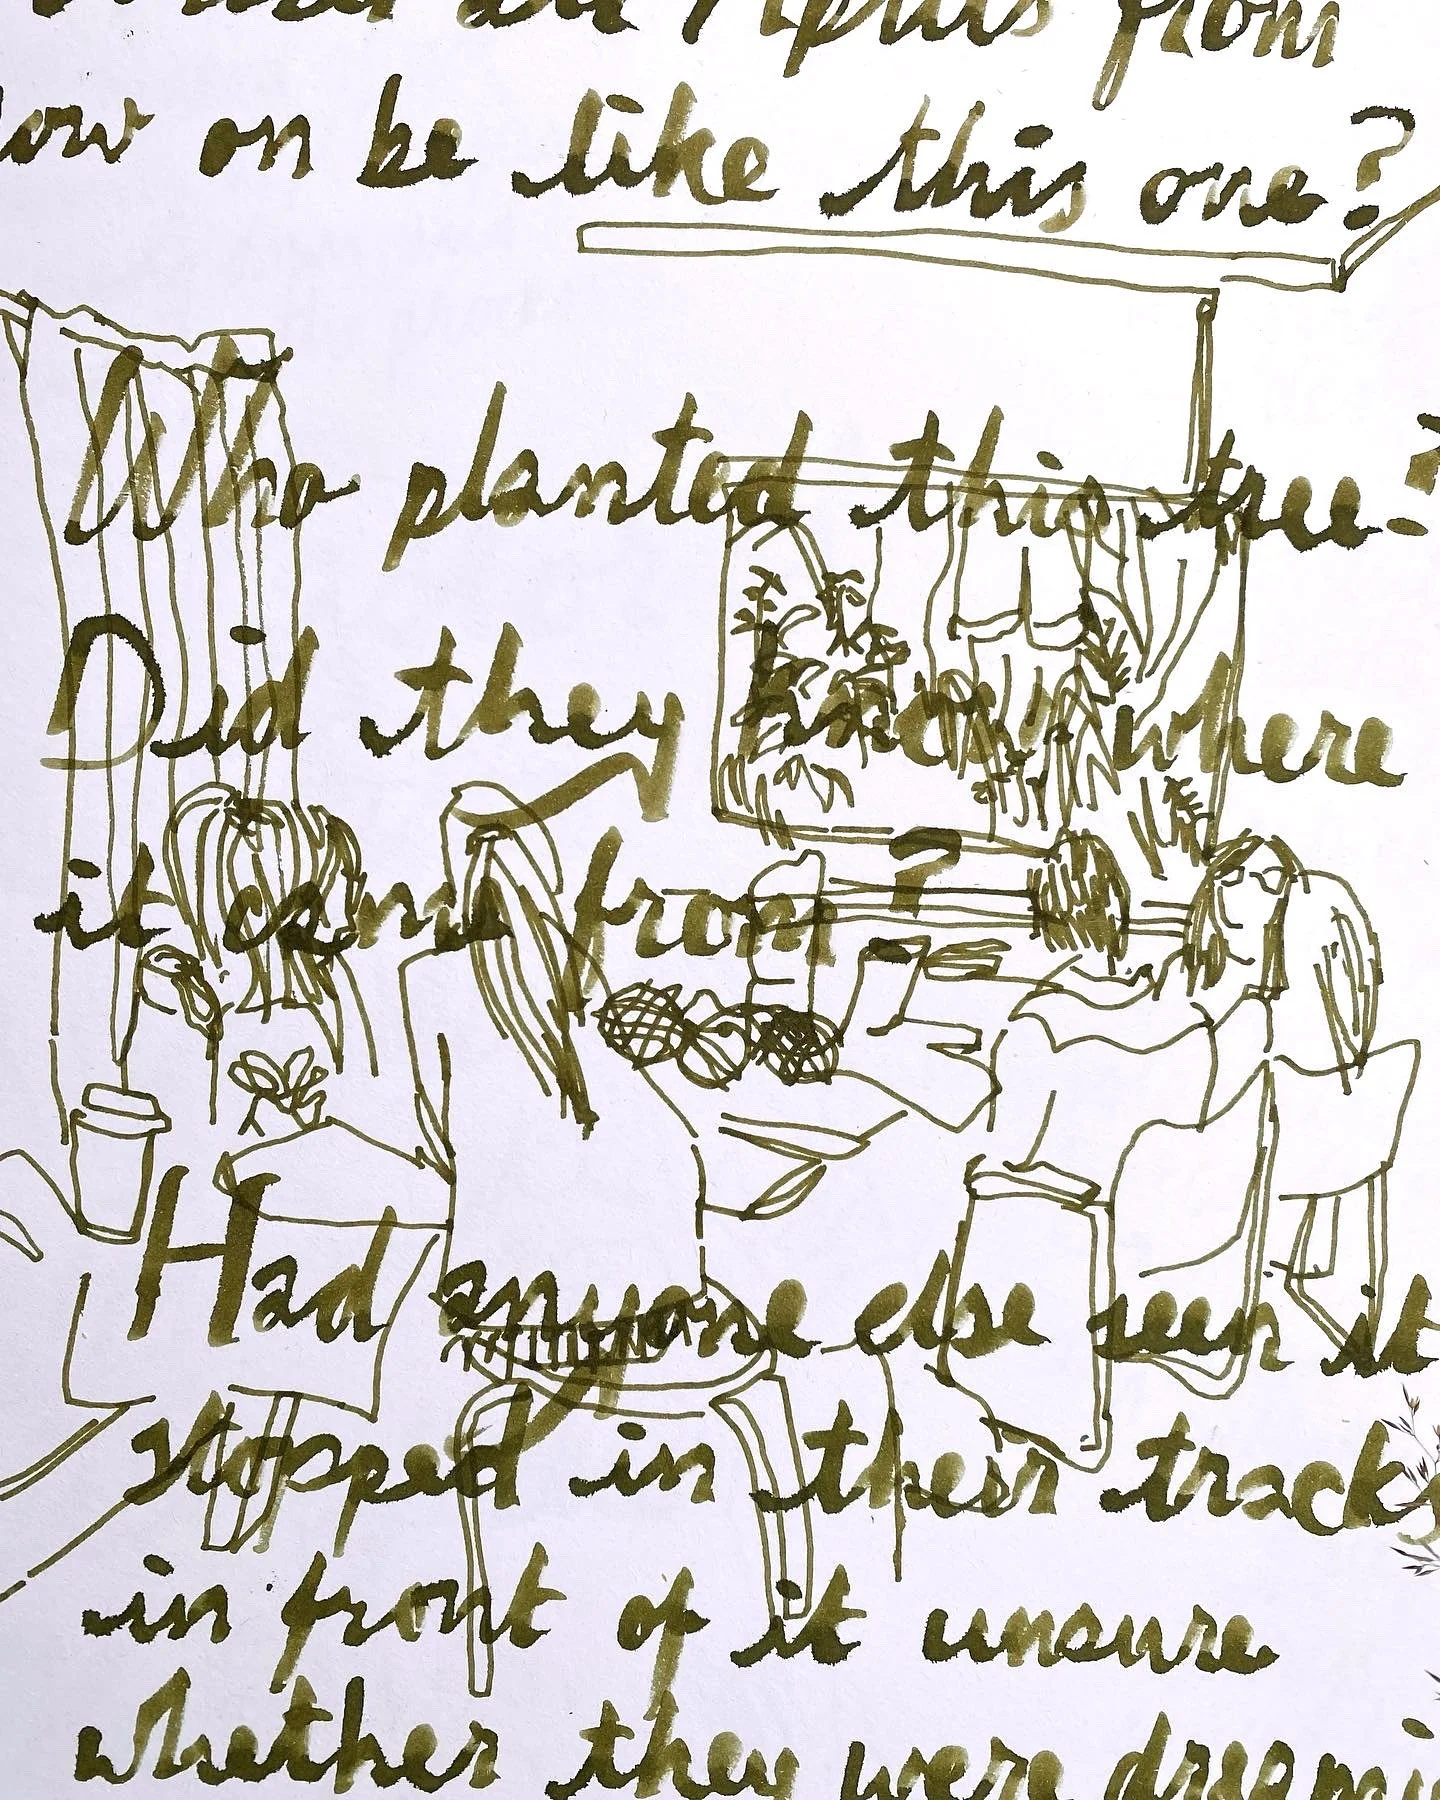 Aprils from
on be like this one?
Who planted this tree?
Did they know where
it came from?
Had anyone else seen it
stopped in their tracks
in front of it unsure
whether they were